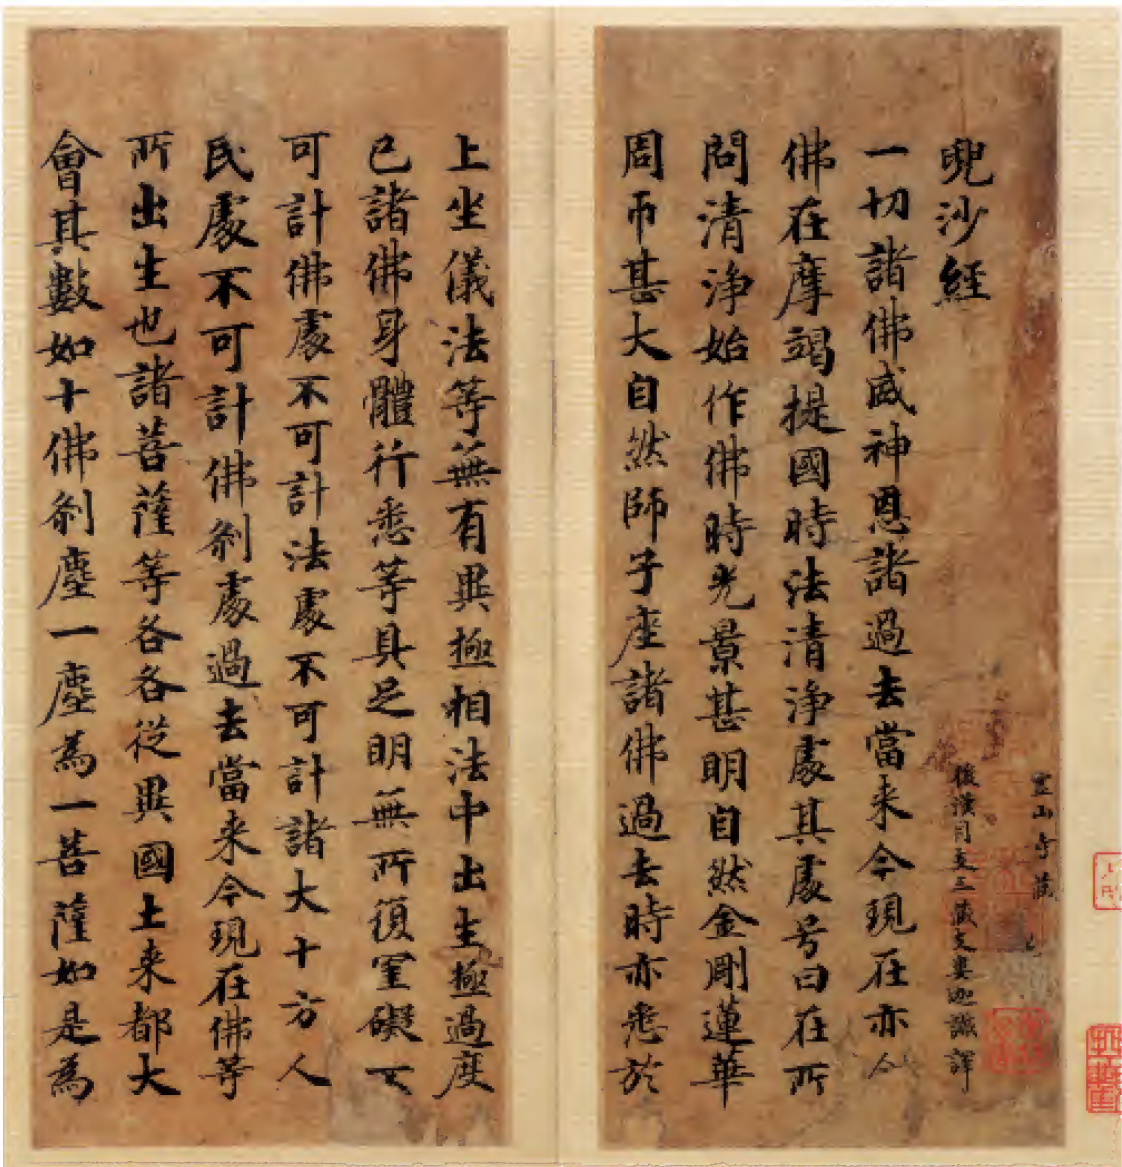 靈山寺藏
兜沙經
後漢月支三藏支婁迦讖譯
一切諸佛威神恩諸過去當来今現在亦人
佛在摩竭提國時法清淨處其處号曰在所
問清淨始作佛時光景甚明自然金剛蓮華
周帀甚大自然師子座諸佛過去時亦悉於
上坐儀法等無有異極相法中出生極過度
已諸佛身體行悉等具足明無所復罣礙不
可計佛處不可計法處不可計諸大十方人
民處不可計佛刹處過去當来今現在佛等
所出生也諸菩薩等各各從異國土来都大
會其數如十佛刹塵一塵為一菩薩如是為